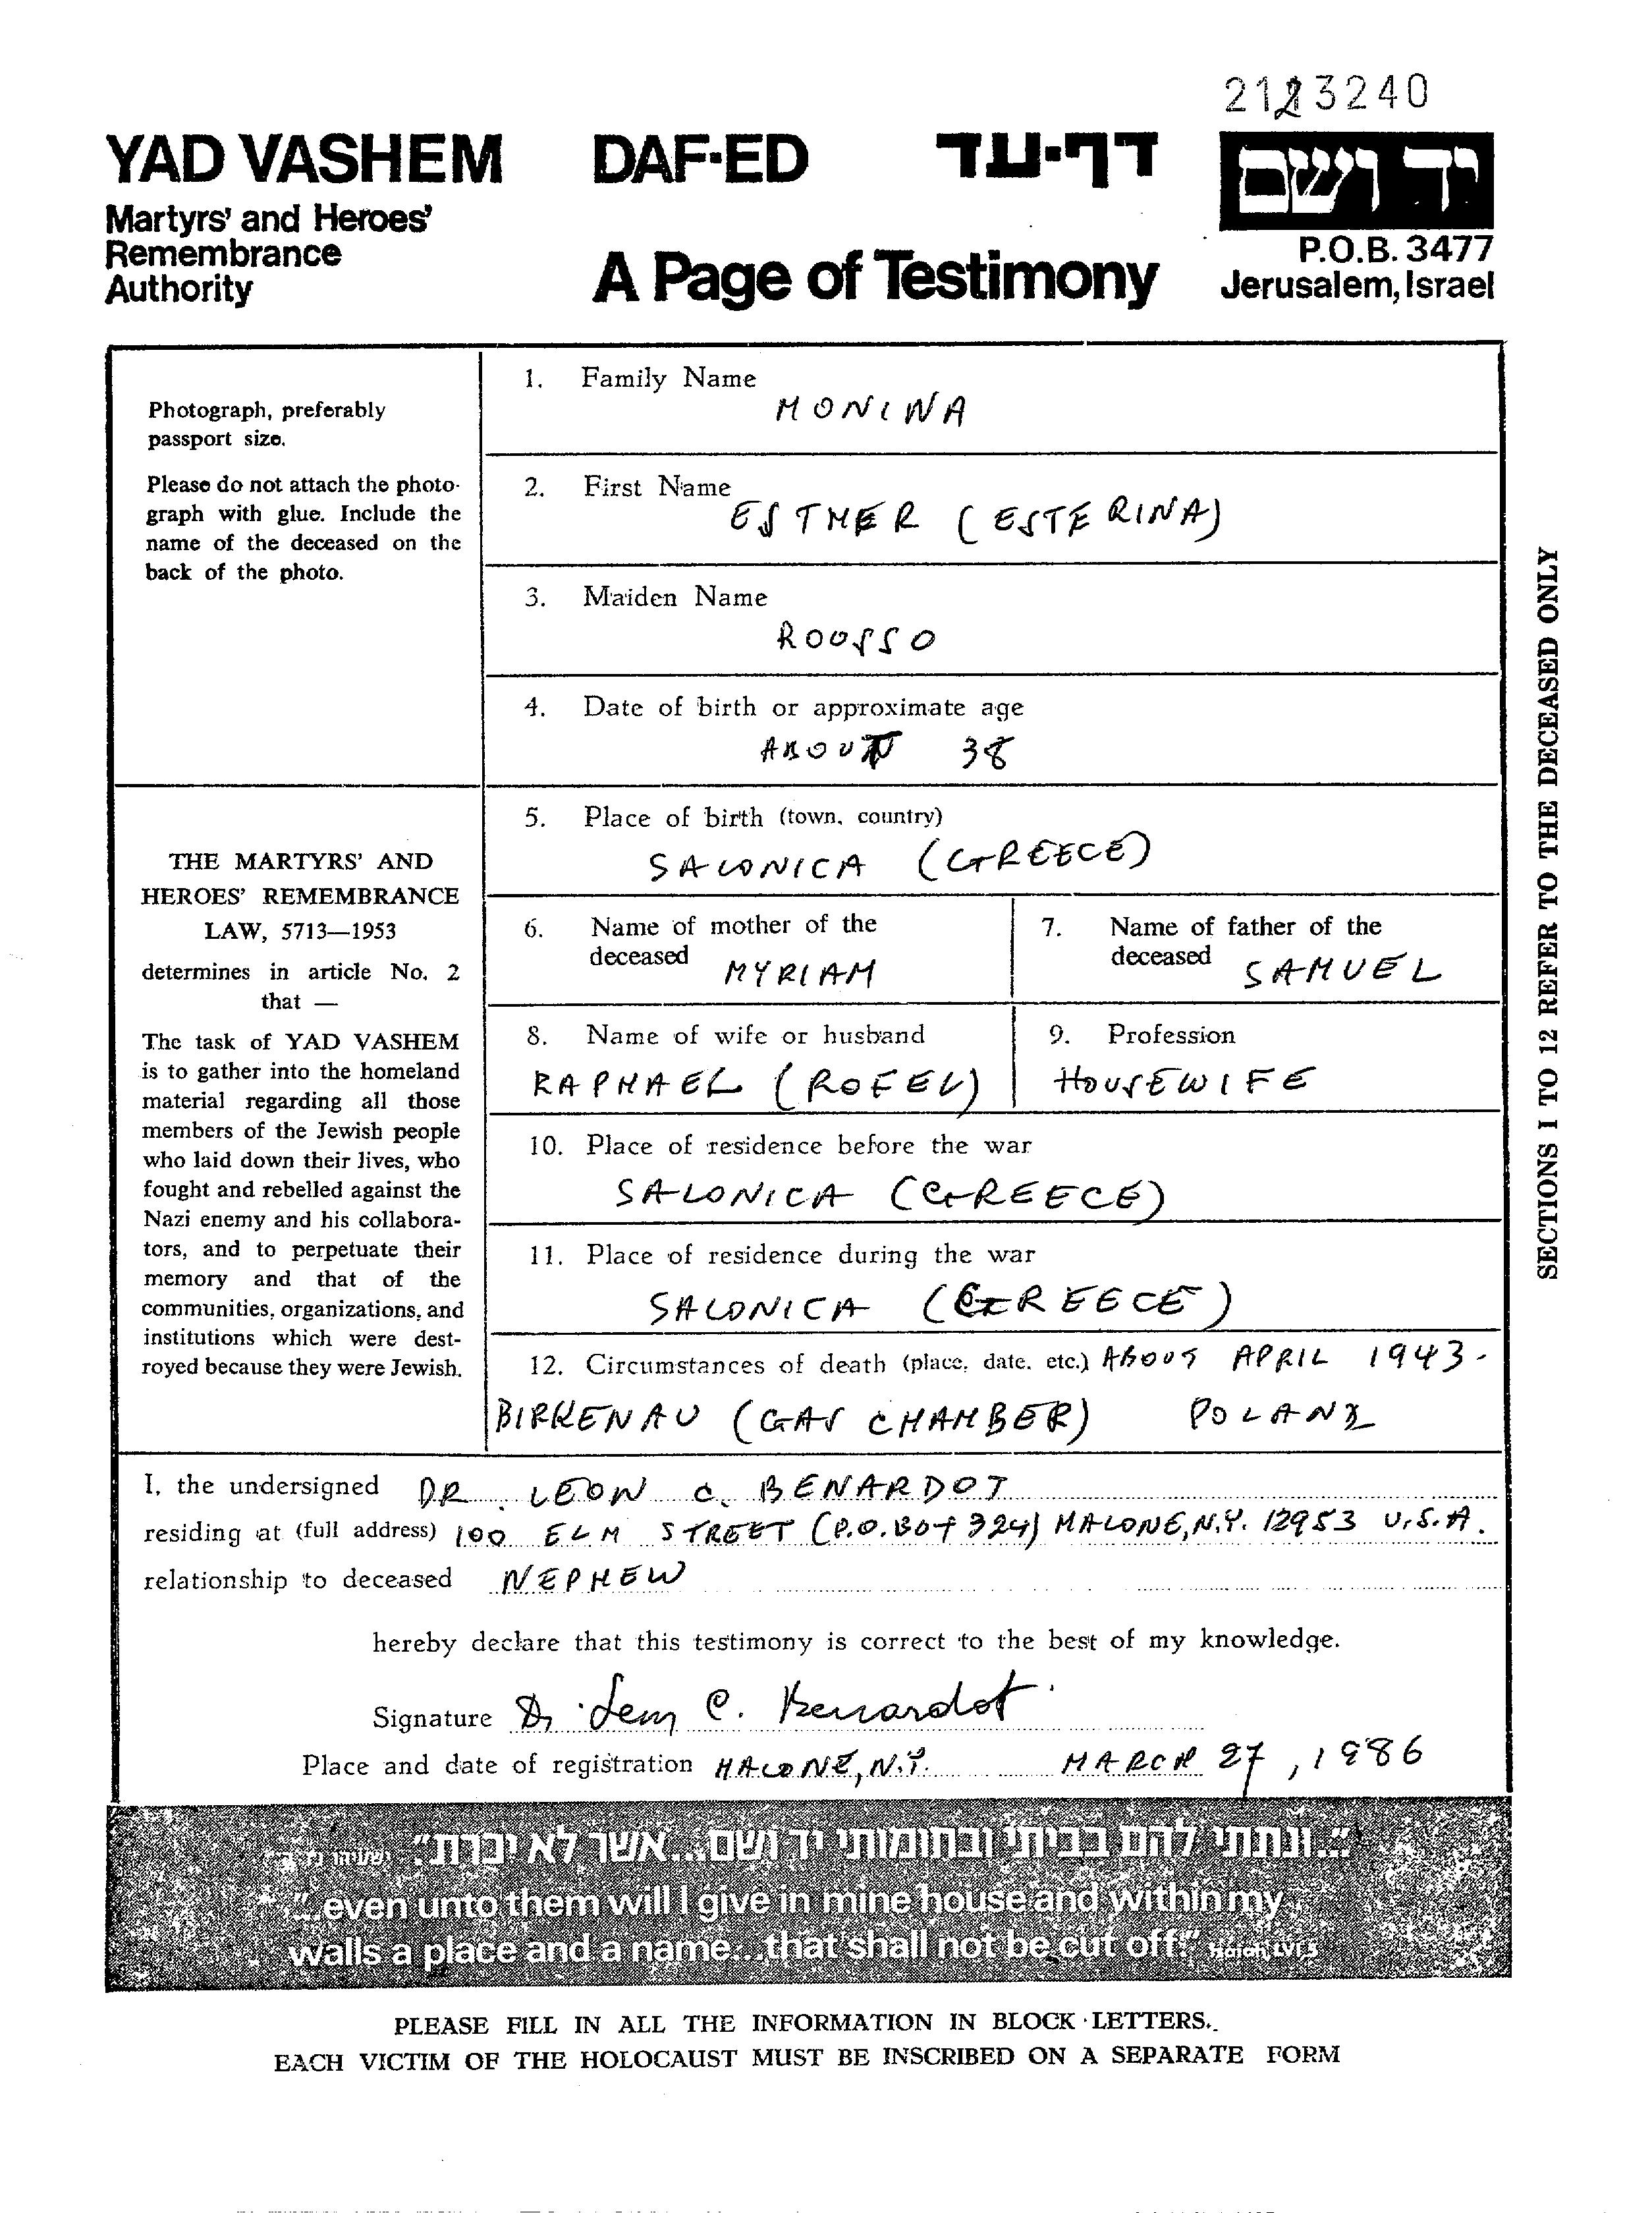 2123240
YAD VASHEM DAF-ED דף-עד יד ושם
Martyrs' and Heroes'
Remembrance
Authority
A Page of Testimony
P.O.B. 3477
Jerusalem, Israel
Photograph, preferably
passport size.
Please do not attach the photo-
graph with glue. Include the
name of the deceased on the
back of the photo.
THE MARTYRS' AND
HEROES' REMEMBRANCE
LAW, 5713—1953
determines in article No. 2
that —
The task of YAD VASHEM
is to gather into the homeland
material regarding all those
members of the Jewish people
who laid down their lives, who
fought and rebelled against the
Nazi enemy and his collabora-
tors, and to perpetuate their
memory and that of the
communities, organizations, and
institutions which were dest-
royed because they were Jewish.
1. Family Name
MONINA
2. First Name
ESTHER (ESTERINA)
3. Maiden Name
ROUSSO
4. Date of birth or approximate age
ABOUT 38
5. Place of birth (town, country)
SALONICA (GREECE)
6. Name of mother of the
deceased MYRIAM
7. Name of father of the
deceased SAMUEL
8. Name of wife or husband
RAPHAEL (ROFEL)
9. Profession
HOUSEWIFE
10. Place of residence before the war
SALONICA (GREECE)
11. Place of residence during the war
SALONICA (GREECE)
12. Circumstances of death (place, date, etc.) ABOUT APRIL 1943-
BIRKENAU (GAS CHAMBER) POLAND
SECTIONS 1 TO 12 REFER TO THE DECEASED ONLY
I, the undersigned DR. LEON C. BENARDOT
residing at (full address) 100 ELM STREET (P.O. BOX 324) MALONE, N.Y. 12953 U.S.A.
relationship to deceased NEPHEW
hereby declare that this testimony is correct to the best of my knowledge.
Signature Dr Leon C. Benardot
Place and date of registration MALONE, N.Y. MARCH 27, 1986
"...ונתתי להם בביתי ובחומותי יד ושם...אשר לא יכרת." ישעיהו
"...even unto them will I give in mine house and within my
walls a place and a name...that shall not be cut off." Isaiah LVI 5
PLEASE FILL IN ALL THE INFORMATION IN BLOCK LETTERS.
EACH VICTIM OF THE HOLOCAUST MUST BE INSCRIBED ON A SEPARATE FORM